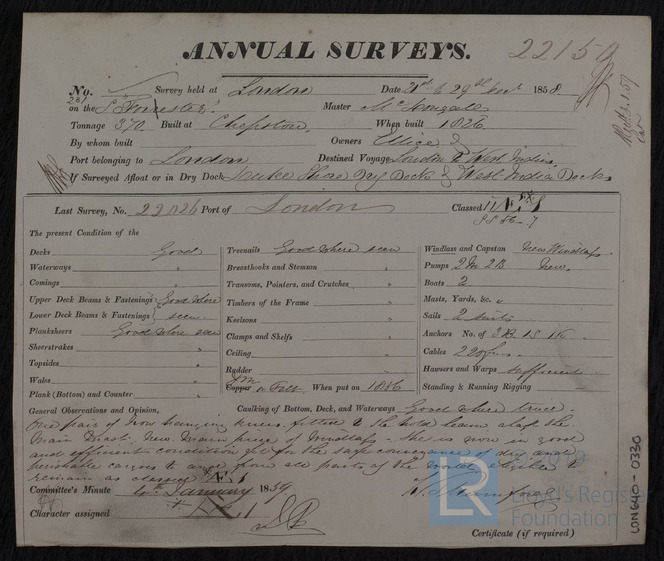 22150
ANNUAL SURVEYS.
No. 281 Survey held at London Date 21st & 29th 1858
on the S. Forrester Master
Tonnage 370 Built at Chepstow When built 1826
By whom built Owners
Port belonging to London Destined Voyage London to West Indies
If Surveyed Afloat or in Dry Dock Shore Dry Dock & West India Docks
Last Survey, No. 22026 Port of London Classed
The present Condition of the
Decks Good
Waterways "
Comings "
Upper Deck Beams & Fastenings Good where
Lower Deck Beams & Fastenings seen
Planksheers Good where seen
Sheerstrakes "
Topsides "
Wales "
Plank (Bottom) and Counter "
Treenails Good where seen
Breasthooks and Stemson "
Transoms, Pointers, and Crutches "
Timbers of the Frame "
Keelsons "
Clamps and Shelfs "
Ceiling "
Rudder "
Copper Y.M. on Felt When put on 1856
Windlass and Capston New Windlass
Pumps 2 M 2 B New
Boats 2
Masts, Yards, &c. "
Sails 2 suits
Anchors No. of 3 B 1 S 1 K
Cables
Hawsers and Warps sufficient
Standing & Running Rigging "
General Observations and Opinion, Caulking of Bottom, Deck, and Waterways Good where tried
One pair of Iron hanging knees fitted to the hold beam abaft the
Main Mast. New Main piece of Windlass. She is now in good
and efficient condition fit for the safe conveyance of dry and
perishable cargoes to and from all parts of the world eligible to
remain as classed
Committee's Minute 4th January 1859
Character assigned
Certificate (if required)
LON640-0330
LR
2019
Lloyd's Register
Foundation